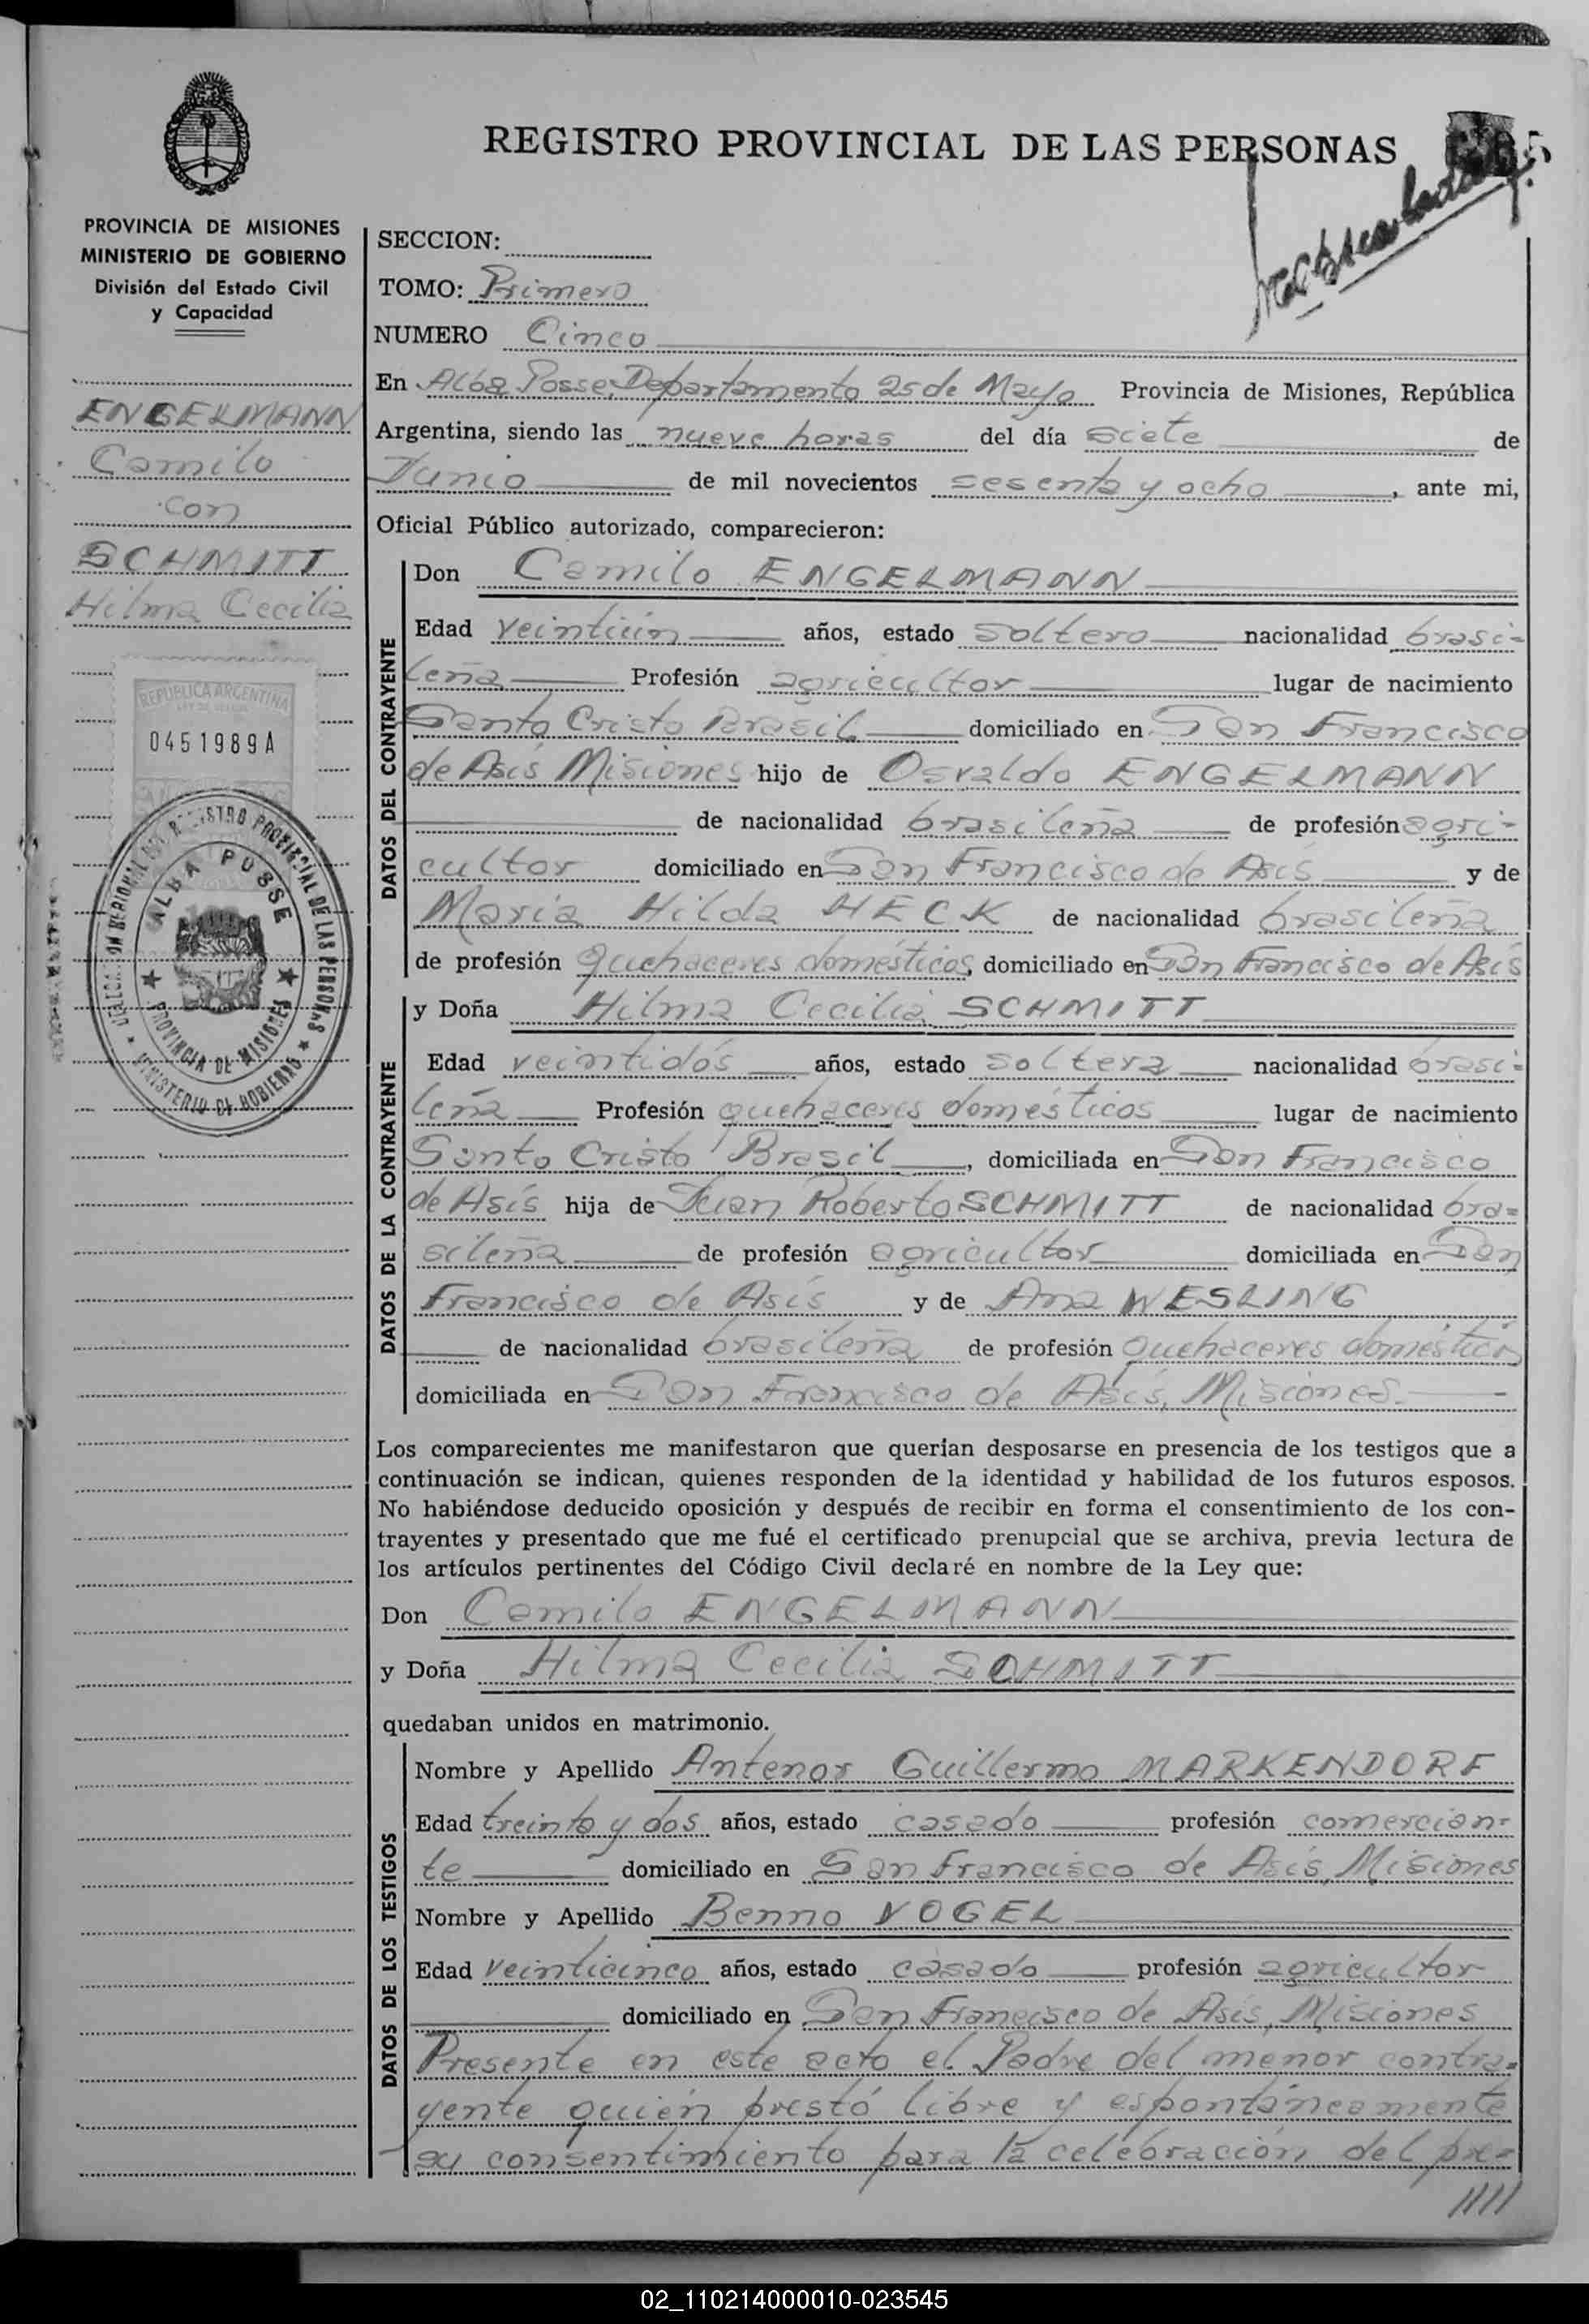 REGISTRO PROVINCIAL DE LAS PERSONAS
PROVINCIA DE MISIONES
MINISTERIO DE GOBIERNO
División del Estado Civil
y Capacidad
ENGELMANN
Camilo
con
SCHMITT
Hilma Cecilia
REPUBLICA ARGENTINA
0451989A
REGISTRO PROVINCIAL DE LAS PERSONAS
ALBA POSSE
PROVINCIA DE MISIONES
MINISTERIO DE GOBIERNO
SECCION:
TOMO: Primero
NUMERO Cinco
En Alba Posse, Departamento 25 de Mayo Provincia de Misiones, República
Argentina, siendo las nueve horas del día siete de
Junio de mil novecientos sesenta y ocho, ante mi,
Oficial Público autorizado, comparecieron:
DATOS DEL CONTRAYENTE
Don Camilo ENGELMANN
Edad veintiún años, estado soltero nacionalidad brasi-
leña Profesión agricultor lugar de nacimiento
Santo Cristo Brasil domiciliado en San Francisco
de Asís Misiones hijo de Osvaldo ENGELMANN
de nacionalidad brasileña de profesión agri-
cultor domiciliado en San Francisco de Asís y de
María Hilda HECK de nacionalidad brasileña
de profesión quehaceres domésticos, domiciliado en San Francisco de Asís
DATOS DE LA CONTRAYENTE
y Doña Hilma Cecilia SCHMITT
Edad veintidós años, estado soltera nacionalidad brasi-
leña Profesión quehaceres domésticos lugar de nacimiento
Santo Cristo Brasil, domiciliada en San Francisco
de Asís hija de Juan Roberto SCHMITT de nacionalidad bra-
sileña de profesión agricultor domiciliada en San
Francisco de Asís y de Ana WESLING
de nacionalidad brasileña de profesión quehaceres domésticos
domiciliada en San Francisco de Asís, Misiones.
Los comparecientes me manifestaron que querían desposarse en presencia de los testigos que a
continuación se indican, quienes responden de la identidad y habilidad de los futuros esposos.
No habiéndose deducido oposición y después de recibir en forma el consentimiento de los con-
trayentes y presentado que me fué el certificado prenupcial que se archiva, previa lectura de
los artículos pertinentes del Código Civil declaré en nombre de la Ley que:
Don Camilo ENGELMANN
y Doña Hilma Cecilia SCHMITT
quedaban unidos en matrimonio.
DATOS DE LOS TESTIGOS
Nombre y Apellido Antenor Guillermo MARKENDORF
Edad treinta y dos años, estado casado profesión comercian-
te domiciliado en San Francisco de Asís, Misiones
Nombre y Apellido Benno VOGEL
Edad veinticinco años, estado casado profesión agricultor
domiciliado en San Francisco de Asís, Misiones
Presente en este acto el Padre del menor contra-
yente quién prestó libre y espontáneamente
su consentimiento para la celebración del pre-
02_110214000010-023545